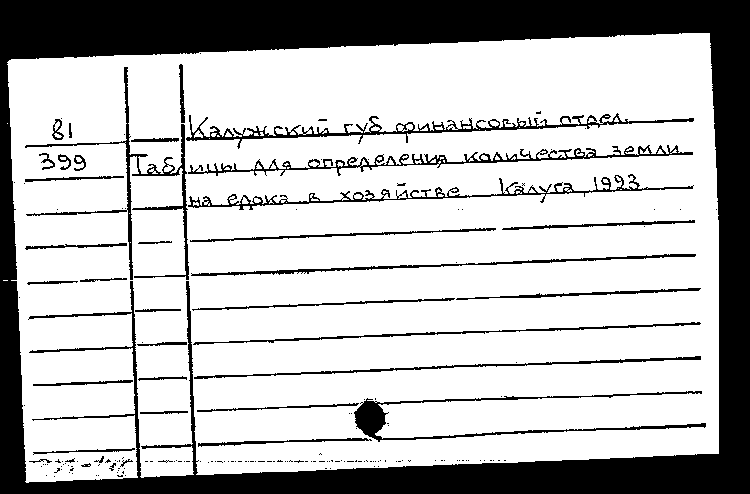 81 Калужский губ финансовый отдел.
399 Таблицы для определения количества земли
на едока в хозяйстве Калуга, 1923